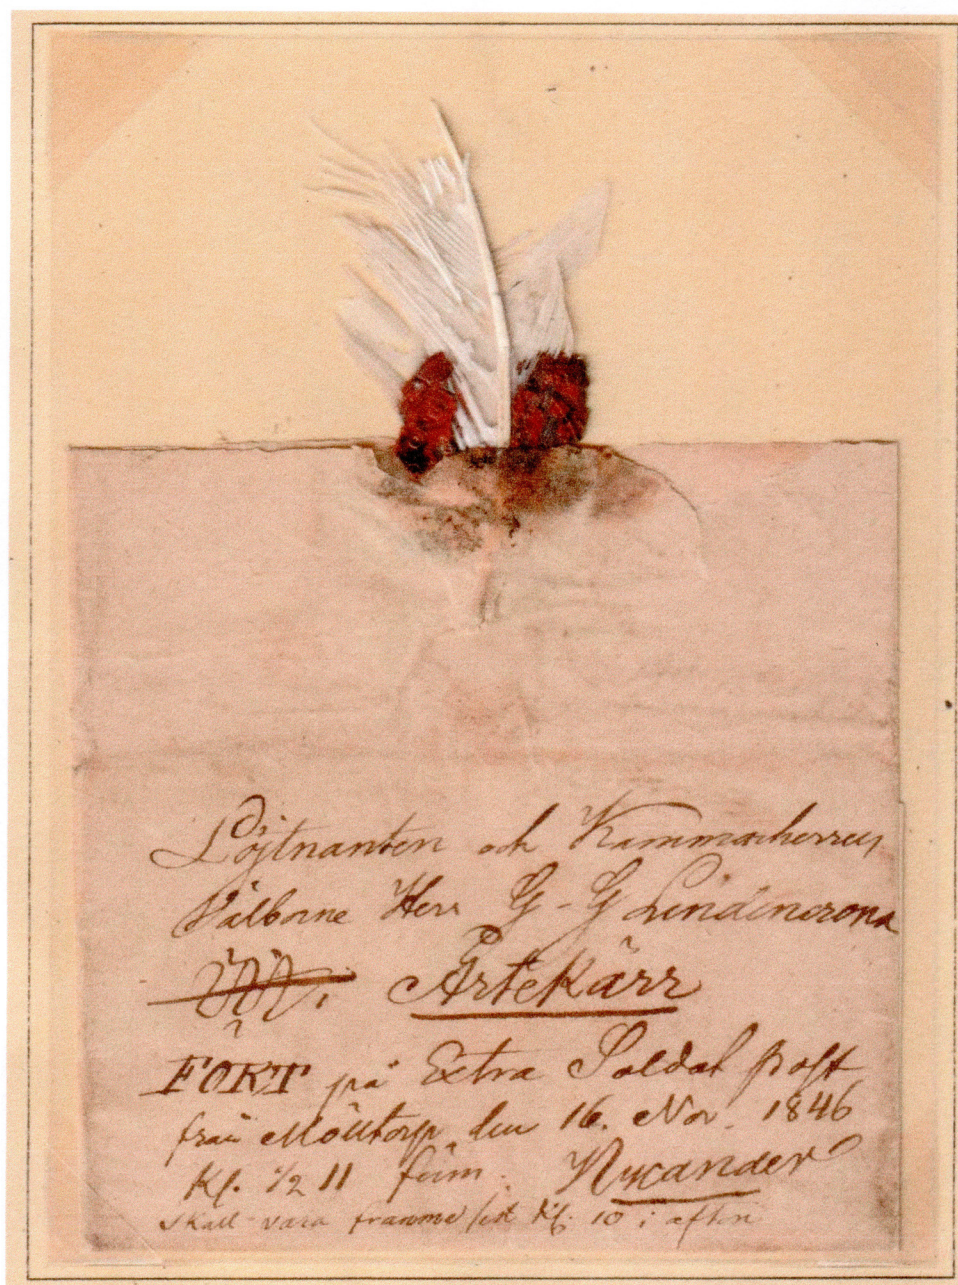 Löjtnanten och Kammarherren
Välborne Herr G-G Lindencrona
Ärtekärr
FORT på Extra Soldat post
från Mölltorp den 16. Nov. 1846
Kl. 1/2 11 f.m. Nycander
Skall vara framme sist kl. 10 i afton